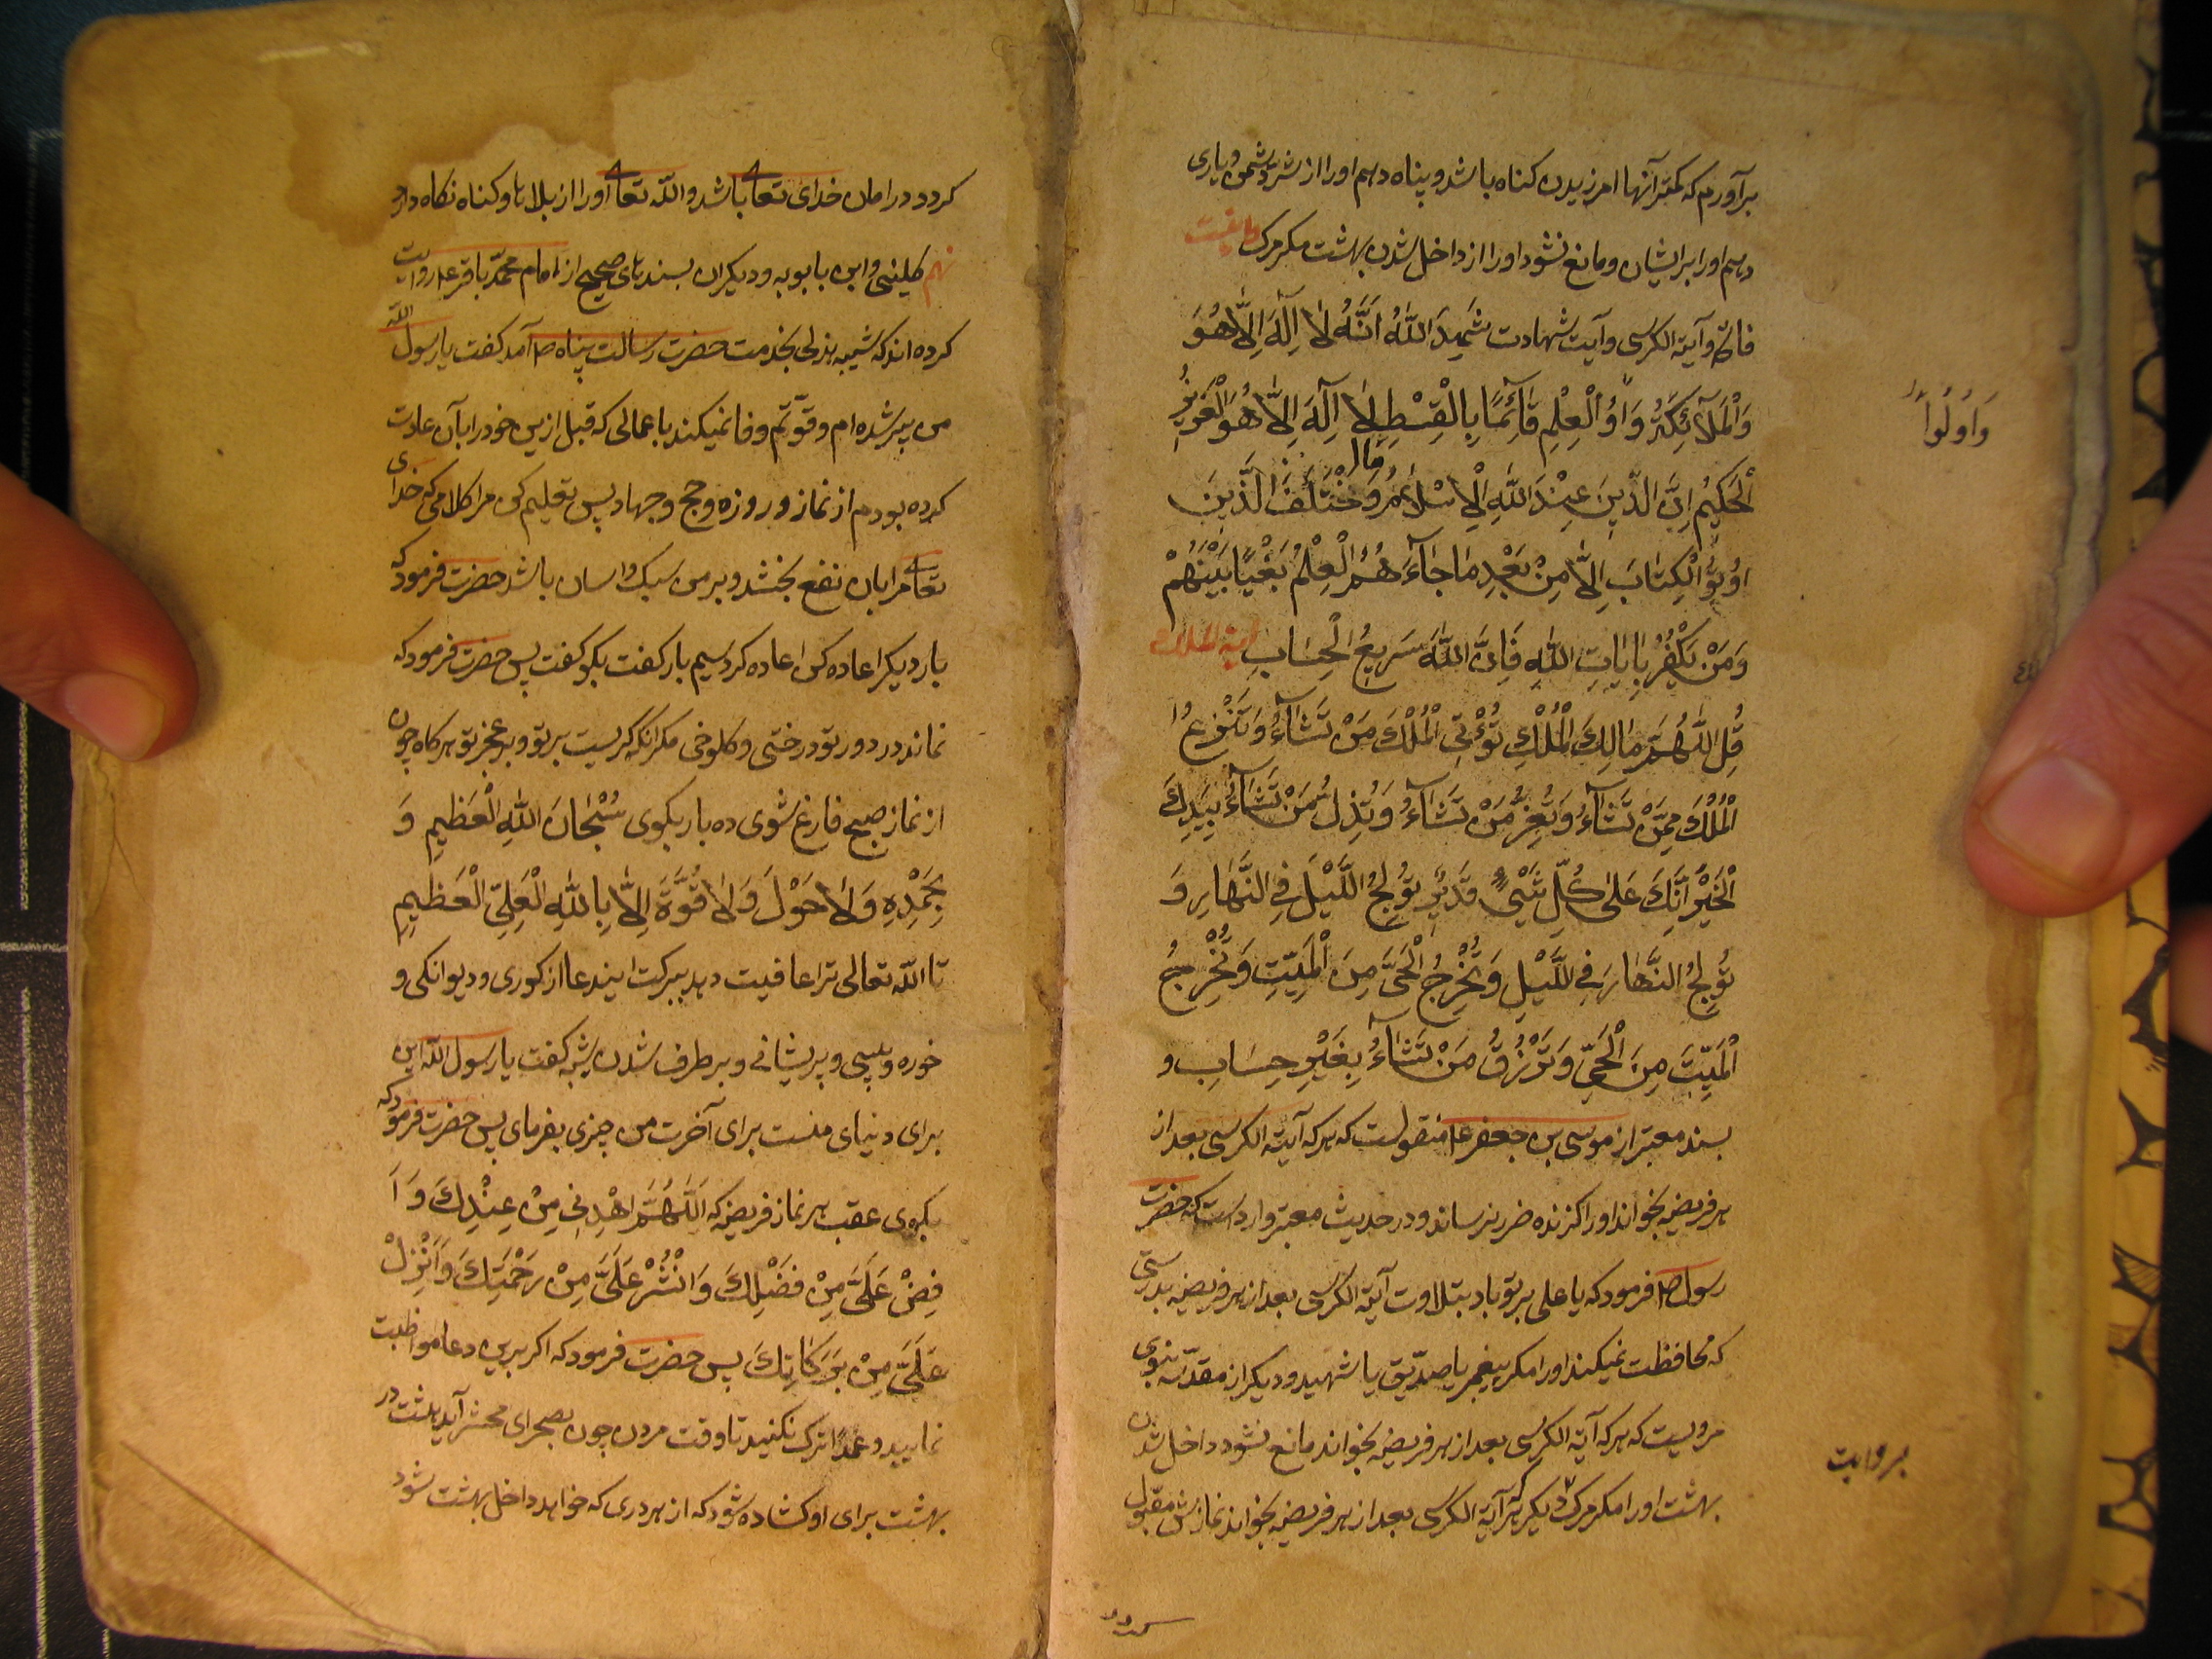 برآورم که کمتر آنها امرزیدن کناه باشد و پناه دهم اورا از شر دشمن و یاری
دهم اورا برایشان و مانع نشود اورا از داخل شدن بهشت مکر مرک
فاتحه و آیة الکرسی و آیت شهادت شَهِدَ اللّٰهُ اَنَّهُ لٰا اِلٰهَ اِلَّا هُوَ
وَالْمَلٰٓائِکَةُ وَاُوُ الْعِلْمِ قٰٓائِمًا بِالْقِسْطِ لٰا اِلٰهَ اِلَّا هُوَ الْعَزِیزُ
وَاُولُوا
الْحَکِیمُ اِنَّ الدِّینَ عِنْدَ اللّٰهِ الْاِسْلٰامُ وَمَا اخْتَلَفَ الَّذِینَ
اُوتُوا الْکِتٰابَ اِلّٰا مِنْ بَعْدِ مٰا جٰٓاءَ هُمُ الْعِلْمُ بَغْیًا بَیْنَهُمْ
وَمَنْ یَکْفُرْ بِاٰیٰاتِ اللّٰهِ فَاِنَّ اللّٰهَ سَرِیعُ الْحِسٰابِ آیة الملک
قُلِ اللّٰهُمَّ مٰالِکَ الْمُلْکِ تُؤْتِی الْمُلْکَ مَنْ تَشٰٓاءُ وَتَنْزِعُ
الْمُلْکَ مِمَّنْ تَشٰٓاءُ وَتُعِزُّ مَنْ تَشٰٓاءُ وَتُذِلُّ مَنْ تَشٰٓاءُ بِیَدِکَ
الْخَیْرُ اِنَّکَ عَلٰی کُلِّ شَیْیءٍ قَدِیرٌ تُولِجُ اللَّیْلَ فِی النَّهٰارِ وَ
تُولِجُ النَّهٰارَ فِی اللَّیْلِ وَتُخْرِجُ الْحَیَّ مِنَ الْمَیِّتِ وَتُخْرِجُ
الْمَیِّتَ مِنَ الْحَیِّ وَتَرْزُقُ مَنْ تَشٰٓاءُ بِغَیْرِ حِسٰابٍ و
بسند معتبر از موسی بن جعفر ع منقولست که هرکه آیة الکرسی بعد از
هر فریضه بخواند اورا کزنده ضرر نرساند و در حدیث معتبر وارد است که حضرت
رسول ص فرمود که یا علی بر تو باد بتلاوت آیة الکرسی بعد از هر فریضه بدرستی
که محافظت نمیکند اورا مکر پیغمبر یا صدّیق یا شهید و دیکر از مقدّسه نبوی
مرویست که هرکه آیة الکرسی بعد از هر فریضه بخواند مانع نشود داخل شدن
بهشت اورا مکر مرک دیکر هرکه آیة الکرسی بعد از هر فریضه بخواند نمازش مقبول
بروایت
کردد در امان خدای تعالی باشد و اللّه تعالی اورا از بلاها و کناه نکاه دارد
نهم کلینی و ابن بابویه و دیکران بسندهای صحیح از امام محمّد باقر ع روایت
کرده اند که شیبه هذلی بخدمت حضرت رسالت پناه ص آمد کفت یا رسول اللّه
من پیر شده ام و قوّتم وفا نمیکند باعمالی که قبل ازین خود را بآن عادت
کرده بودم از نماز و روزه و حج و جهاد پس تعلیم کن مرا کلامی که خدای
تعالی مرا بان نفع بخشد و بر من سبک و اسان باشد حضرت فرمود که
بار دیکر اعاده کن اعاده کرد سیم بار کفت بکو کفت پس حضرت فرمود که
نماند در دور تو درختی و کلوخی مکر انکه کریست بر تو و بر عجز تو هرکاه چون
از نماز صبح فارغ شوی ده بار بکوی سُبْحٰانَ اللّٰهِ الْعَظِیمِ وَ
بِحَمْدِهِ وَلٰا حَوْلَ وَلٰا قُوَّةَ اِلّٰا بِاللّٰهِ الْعَلِیِّ الْعَظِیمِ
تا اللّه تعالی ترا عافیت دهد ببرکت ایندعا از کوری و دیوانکی و
خوره و پیسی و پریشانی و برطرف شدن شیبه کفت یا رسول اللّه این
برای دنیای منست برای آخرت من چیزی بفرمای پس حضرت فرمود که
بکوی عقب هر نماز فریضه که اَللّٰهُمَّ اهْدِنِی مِنْ عِنْدِکَ وَ اَ
فِضْ عَلَیَّ مِنْ فَضْلِکَ وَانْشُرْ عَلَیَّ مِنْ رَحْمَتِکَ وَاَنْزِلْ
عَلَیَّ مِنْ بَرَکٰاتِکَ پس حضرت فرمود که اکر برین دعا مواظبت
نمایید و عمدًا ترک نکنید تا وقت مردن چون بصحرای محشر آید هشت در
بهشت برای او کشاده شود که از هر دری که خواهد داخل بهشت شود